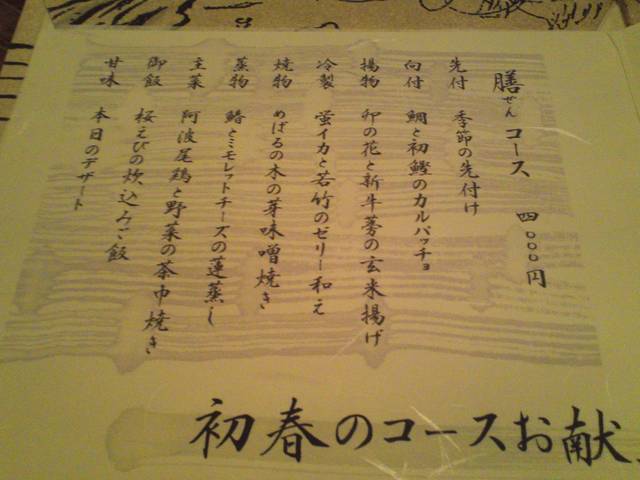 膳 ぜん コース 四〇〇〇円
先付 季節の先付け
向付 鯛と初鰹のカルパッチョ
揚物 卯の花と新牛蒡の玄米揚げ
冷製 蛍イカと若竹のゼリー和え
焼物 めばるの木の芽味噌焼き
蒸物 鰆とミモレットチーズの蓮蒸し
主菜 阿波尾鶏と野菜の茶巾焼き
御飯 桜えびの炊込みご飯
甘味 本日のデザート
初春のコースお献